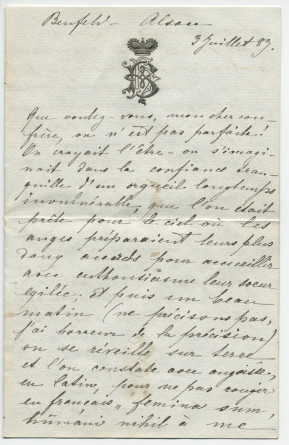 Benfeld - Alsace
3 Juillet 89.
Que voulez-vous, mon cher con-
frère, on n'est pas parfaite!
On croyait l'être - on s'imagi-
nait dans la confiance tran-
quille d'un orgueil longtemps
invulnérable, que l'on était
prête pour le ciel où les
anges préparaient leurs plus
doux accords pour accueillir
avec enthousiasme leur soeur
égilée; Et puis un beau
matin (ne précisons pas,
j'ai horreur de la précision)
on se réveille sur terre
et l'on constate avec angoisse,
en latin, pour ne pas rougir
en français "femina sum,
humani nihil a me